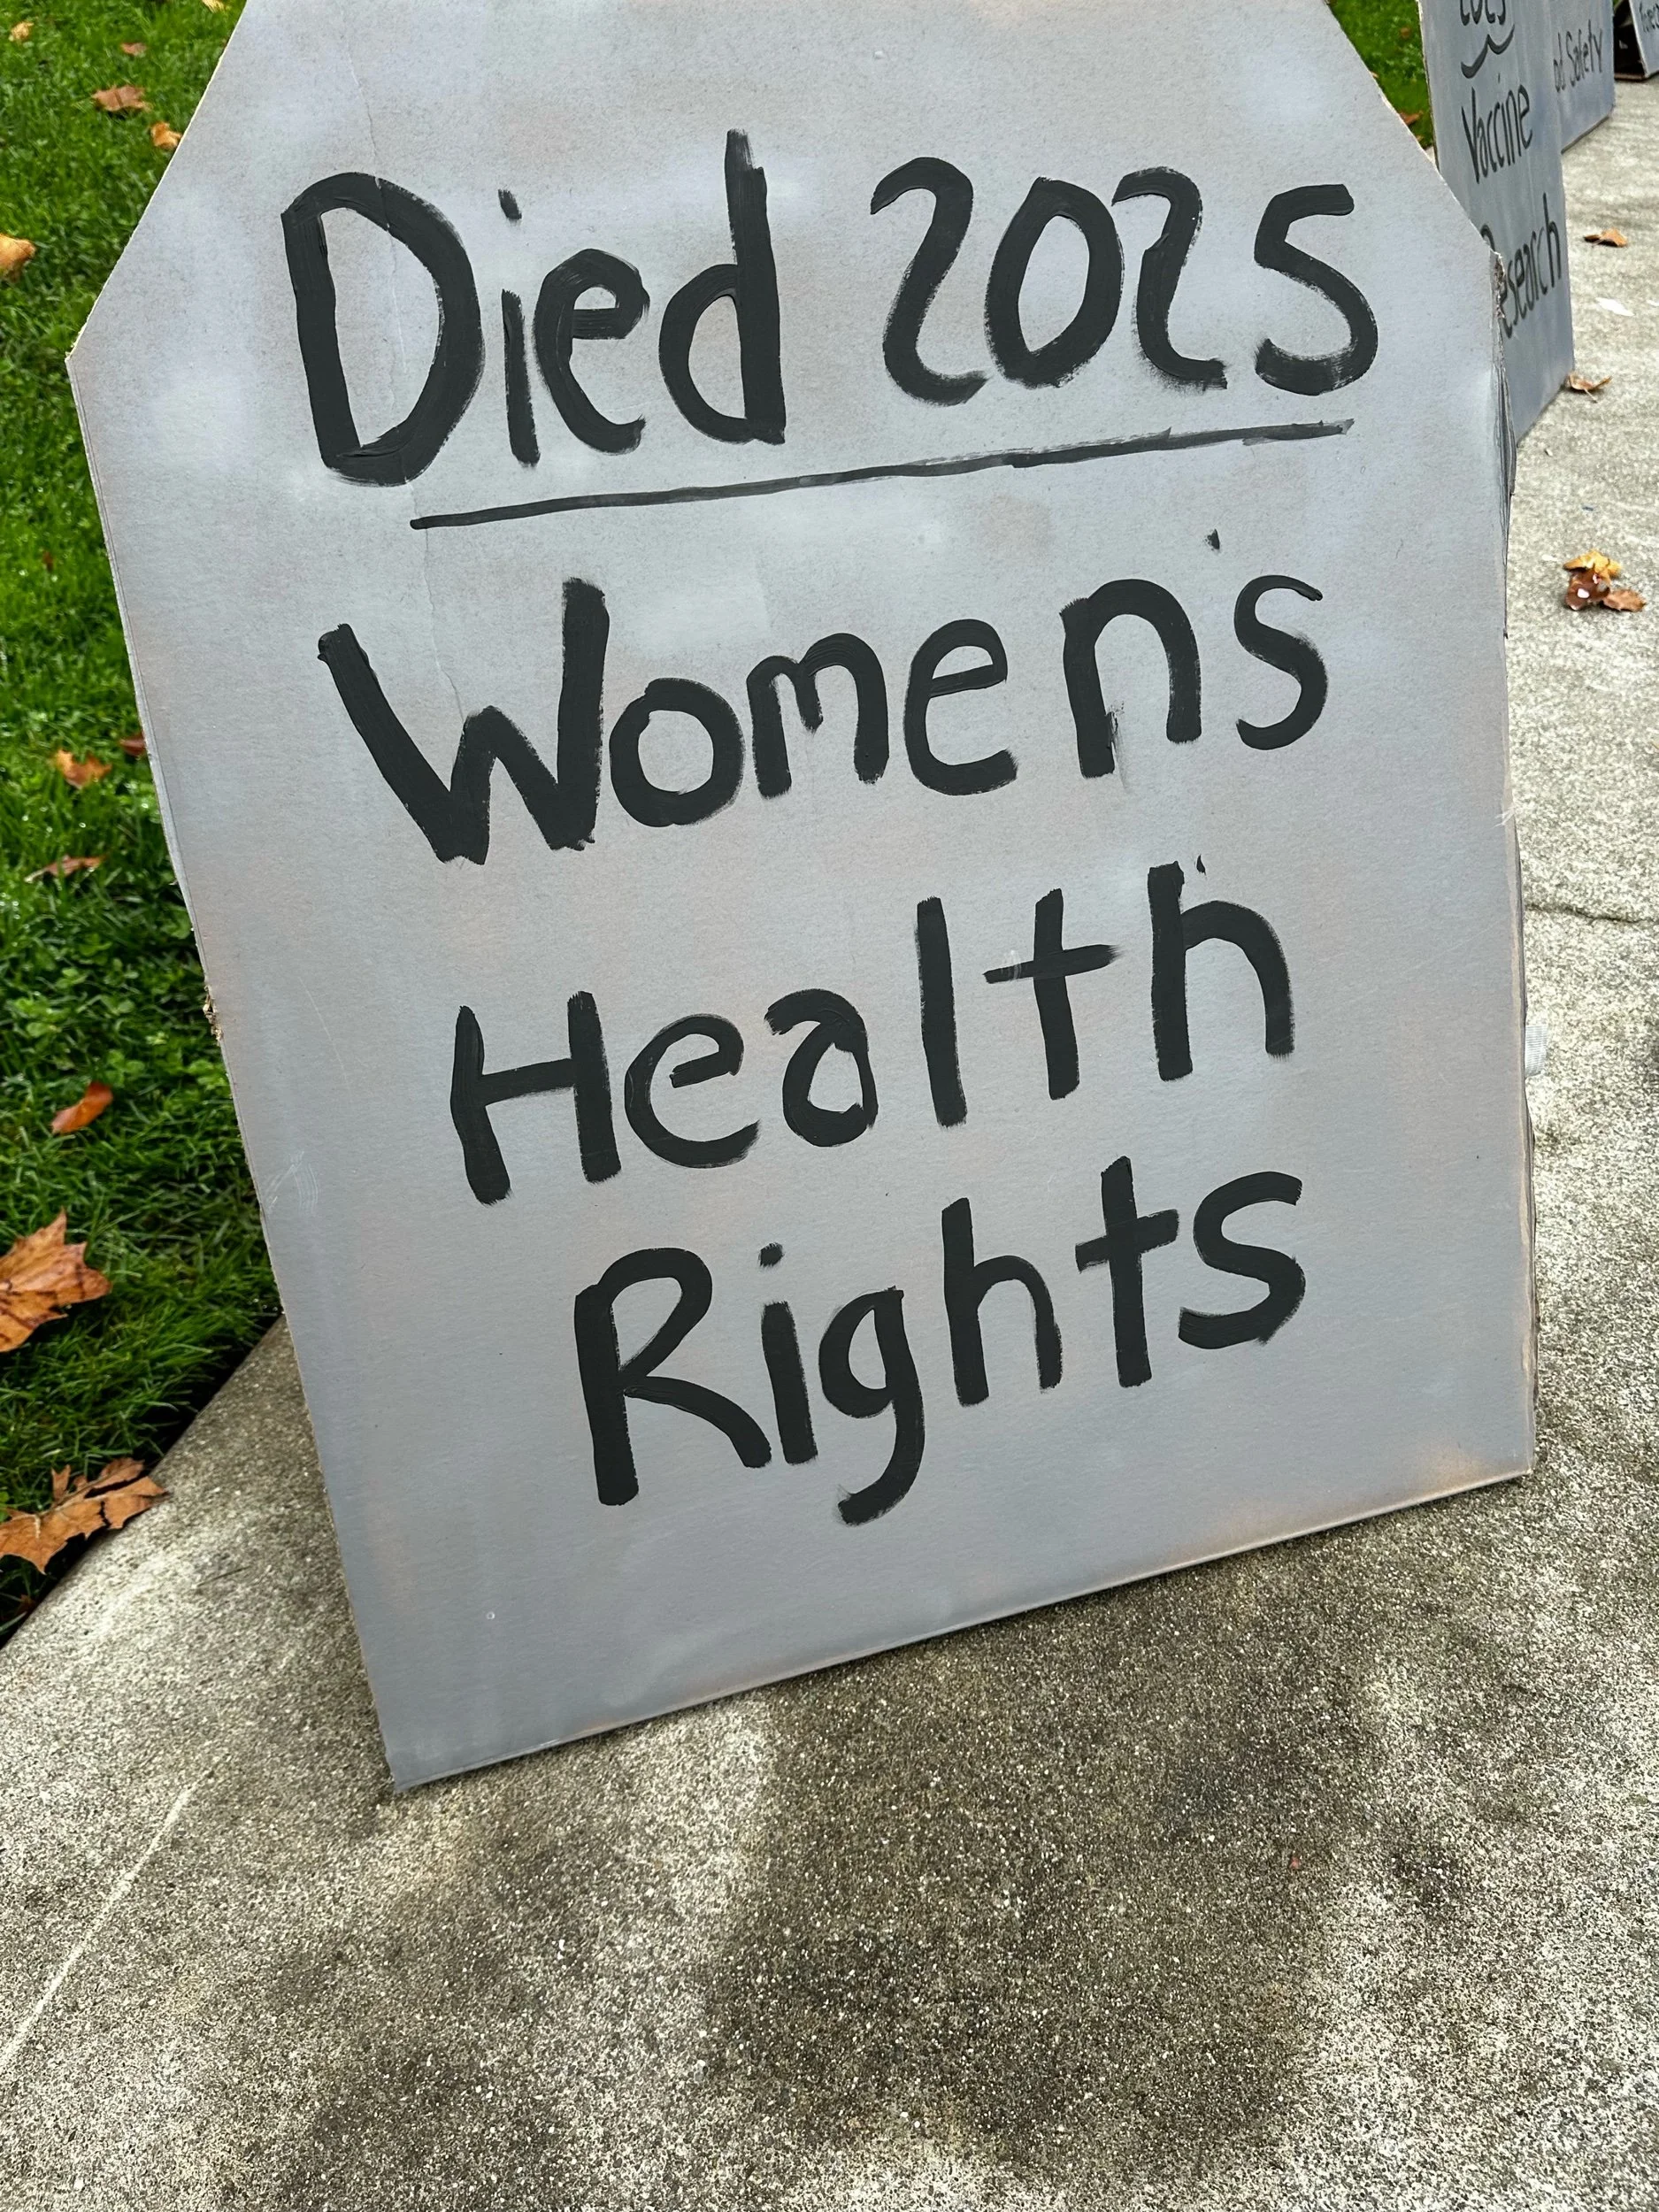 Died 2025
Women's
Health
Rights
2025
Vaccine
Research
Safety